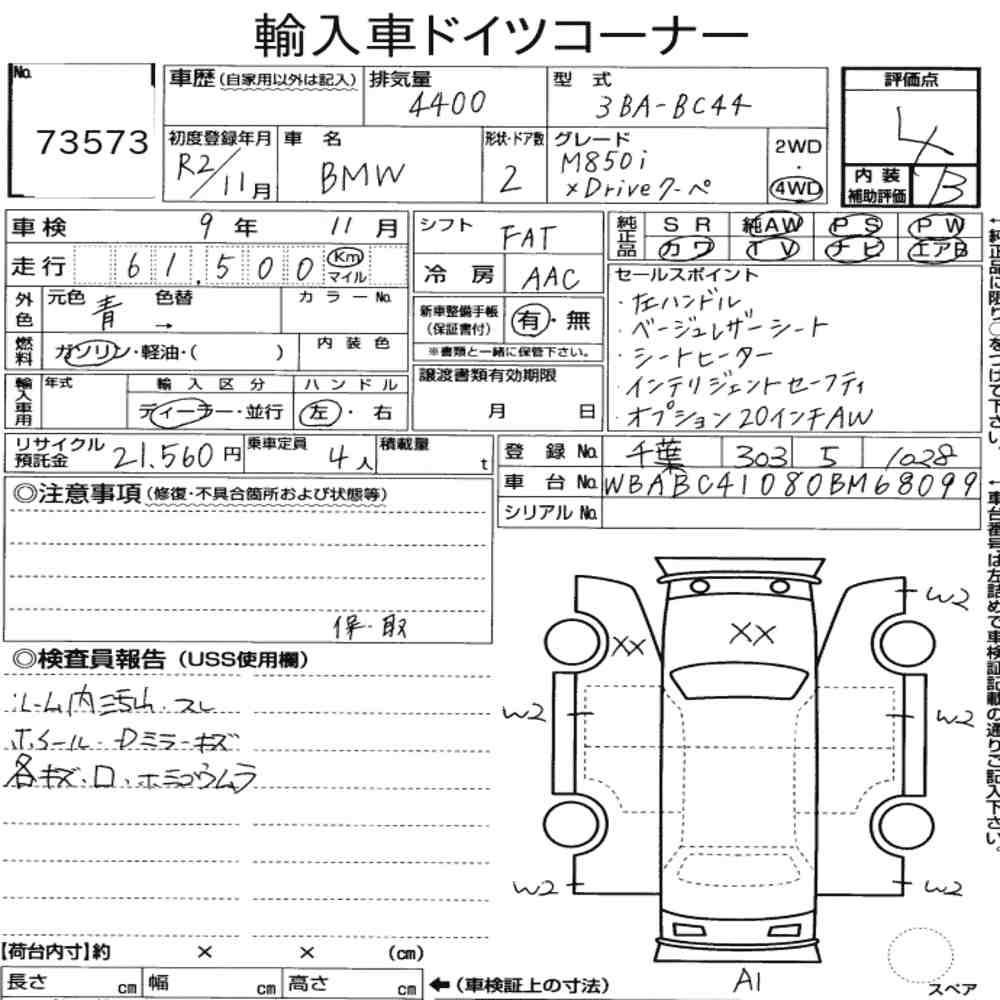 輸入車ドイツコーナー
No.
73573
車歴(自家用以外は記入)
排気量
4400
型 式
3BA-BC44
評価点
4
初度登録年月
R2/11月
車 名
BMW
形状・ドア数
2
グレード
M850i
xDriveクーペ
2WD
・
4WD
内 装
補助評価
B
車検 9年 11月
走行 61,500 Km マイル
シフト
FAT
冷 房
AAC
純正品
S R 純AW P S P W
カワ T V ナビ エアB
外色
元色
青
色替
→
カラーNo.
燃料
ガソリン・軽油・( )
内 装 色
新車整備手帳
(保証書付)
有・無
※書類と一緒に保管下さい。
セールスポイント
・左ハンドル
・ベージュレザーシート
・シートヒーター
・インテリジェントセーフティ
・オプション20インチAW
輸入車用
年式
輸 入 区 分
ディーラー・並行
ハ ン ド ル
左・右
譲渡書類有効期限
月 日
リサイクル
預託金
21,560円
乗車定員
4人
積載量
t
登 録 No. 千葉 303 5 1028
車 台 No. WBABC41080BM68099
シリアル No.
◎注意事項(修復・不具合箇所および状態等)
保・取
◎検査員報告(USS使用欄)
ルーム内汚れ・スレ
ホイール・Dミラーキズ
各キズ・ロ・ホミコウムラ
XX
XX
W2
W2
W2
W2
W2
A1
スペア
【荷台内寸】約 × × (cm)
長さ cm
幅 cm
高さ cm
←(車検証上の寸法)
←純正品に限り○をつけて下さい。
←車台番号は左詰めで車検証記載の通りご記入下さい。